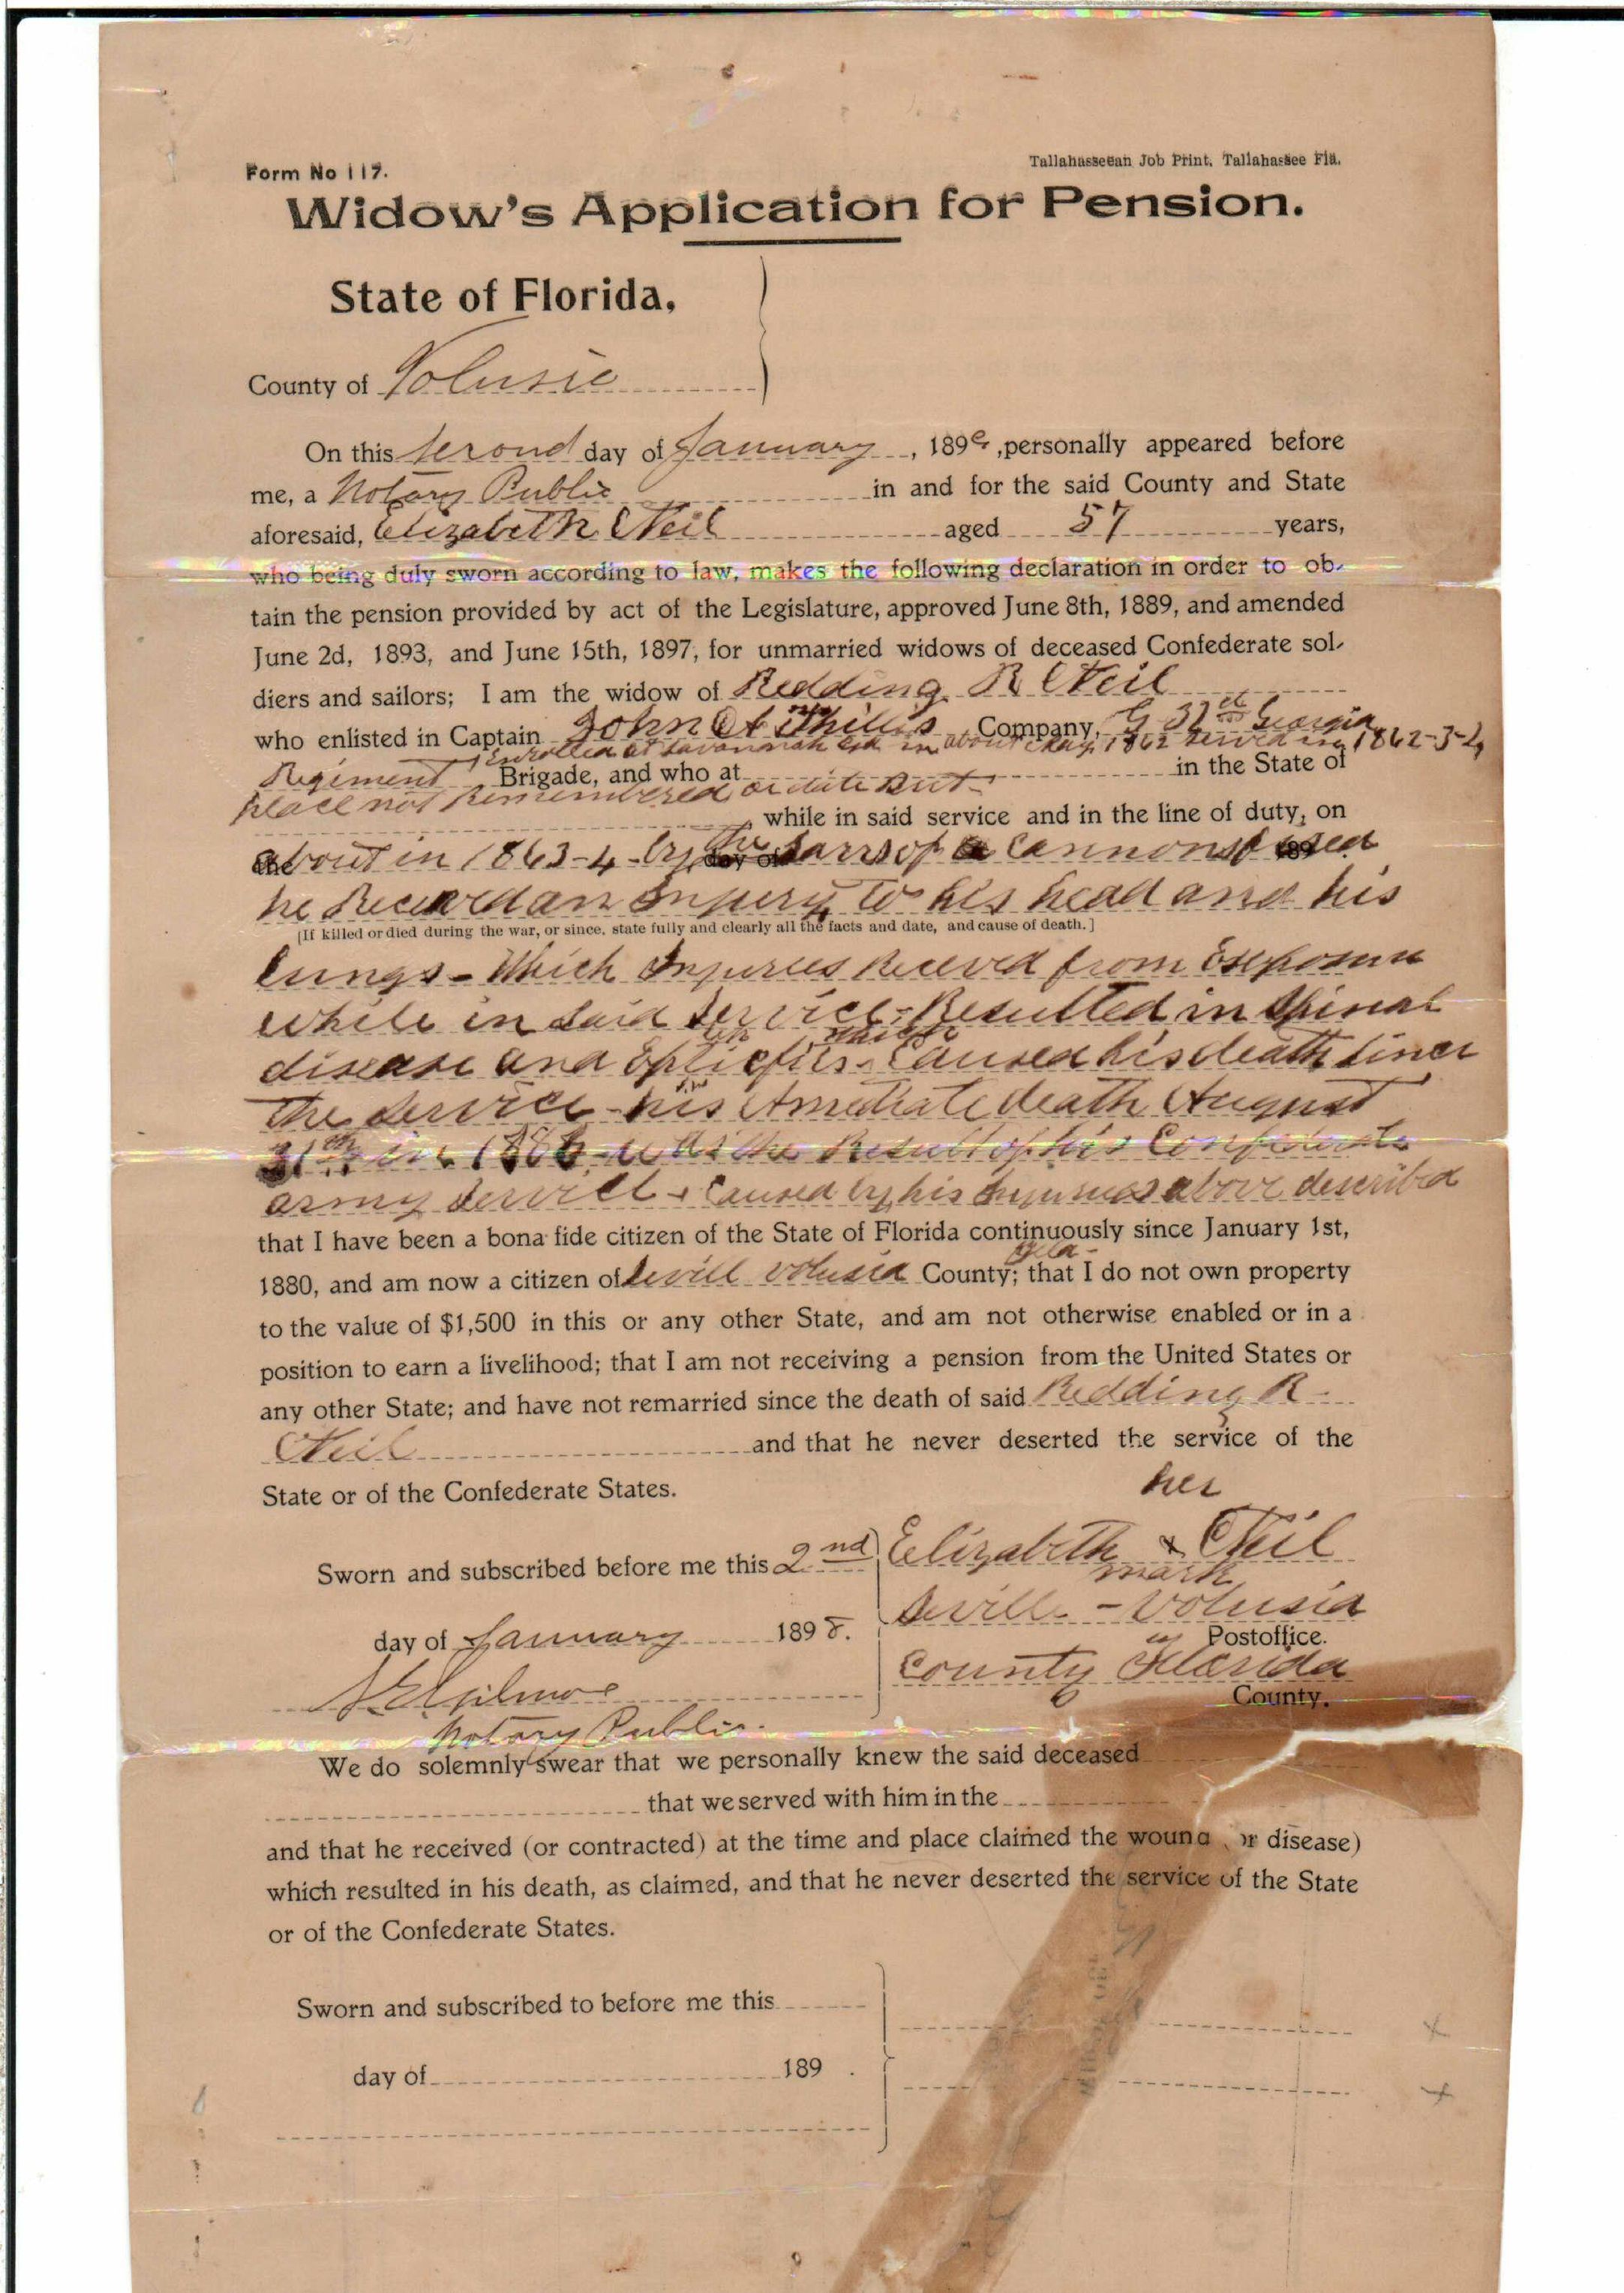 Form No 117.
Tallahasseean Job Print. Tallahassee Fla.
Widow's Application for Pension.
State of Florida,
County of Volusia
On this second day of January , 189 , personally appeared before
me, a Notary Public in and for the said County and State
aforesaid, Elizabeth ONeil aged 57 years,
who being duly sworn according to law, makes the following declaration in order to ob-
tain the pension provided by act of the Legislature, approved June 8th, 1889, and amended
June 2d, 1893, and June 15th, 1897, for unmarried widows of deceased Confederate sol-
diers and sailors; I am the widow of Redding R ONeil
who enlisted in Captain John A Phillips Company, G 32nd Georgia
enrolled at Savannah Ga in about May 1862 served in 1862-3-4
Regiment Brigade, and who at in the State of
place not Remembered or date But
while in said service and in the line of duty, on
the about in 1863-4 by the day of of a Cannon used 189
he Received an Injury to his head and his
[If killed or died during the war, or since, state fully and clearly all the facts and date, and cause of death.]
lungs - Which Injuries Received from Exposure
while in said service - Resulted in Spinal
disease and fits which Caused his death since
the service - his Amediate death August
31 in 1886 was the Result of his Confederate
army Service & Caused by his Injuries above described
that I have been a bona fide citizen of the State of Florida continuously since January 1st,
Fla-
1880, and am now a citizen of Sevill Volusia County; that I do not own property
to the value of $1,500 in this or any other State, and am not otherwise enabled or in a
position to earn a livelihood; that I am not receiving a pension from the United States or
any other State; and have not remarried since the death of said Redding R
ONeil and that he never deserted the service of the
State or of the Confederate States.
her
Sworn and subscribed before me this 2nd Elizabeth x ONeil
mark
Seville - Volusia
day of January 1898. Postoffice.
County Florida
Gilmore County.
Notary Public.
We do solemnly swear that we personally knew the said deceased
that we served with him in the
and that he received (or contracted) at the time and place claimed the wound or disease)
which resulted in his death, as claimed, and that he never deserted the service of the State
or of the Confederate States.
Sworn and subscribed to before me this
x
day of 189 .
x